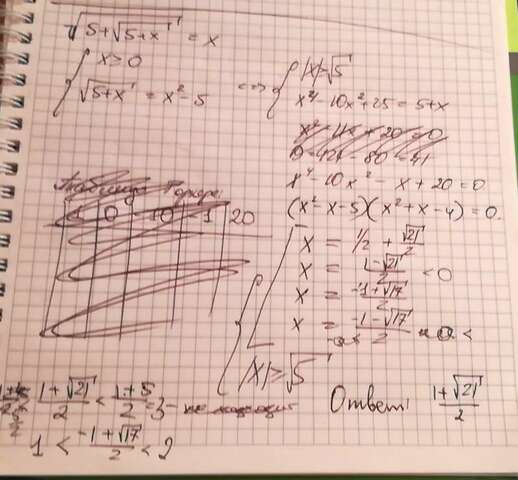 √(5+√(5+x)) = x
{ x ≥ 0
√(5+x) = x² - 5 <=> { |x| ≥ √5
x⁴ - 10x² + 25 = 5+x
x⁴ - 10x² - x + 20 = 0
(x² - x - 5)(x² + x - 4) = 0.
0 -10 -1 20
[ x = 1/2 + √21/2
x = (1-√21)/2 < 0
x = (-1+√17)/2
x = (-1-√17)/2 <
|x| ≥ √5
(1+√21)/2 < (1+5)/2 = 3 -
1 < (-1+√17)/2 < 2
Ответ: (1+√21)/2